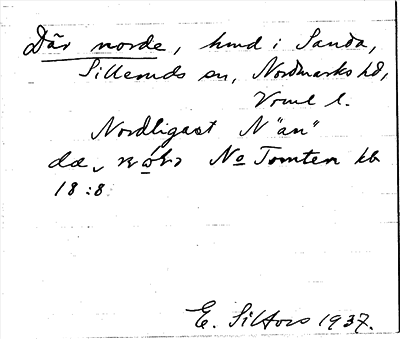 Där norde, hmd i Sanda,
Silleruds sn, Nordmarks hd,
Vrml l.
Nordligast N "än"
da, No Tomten kb
18:8
E. 1937.